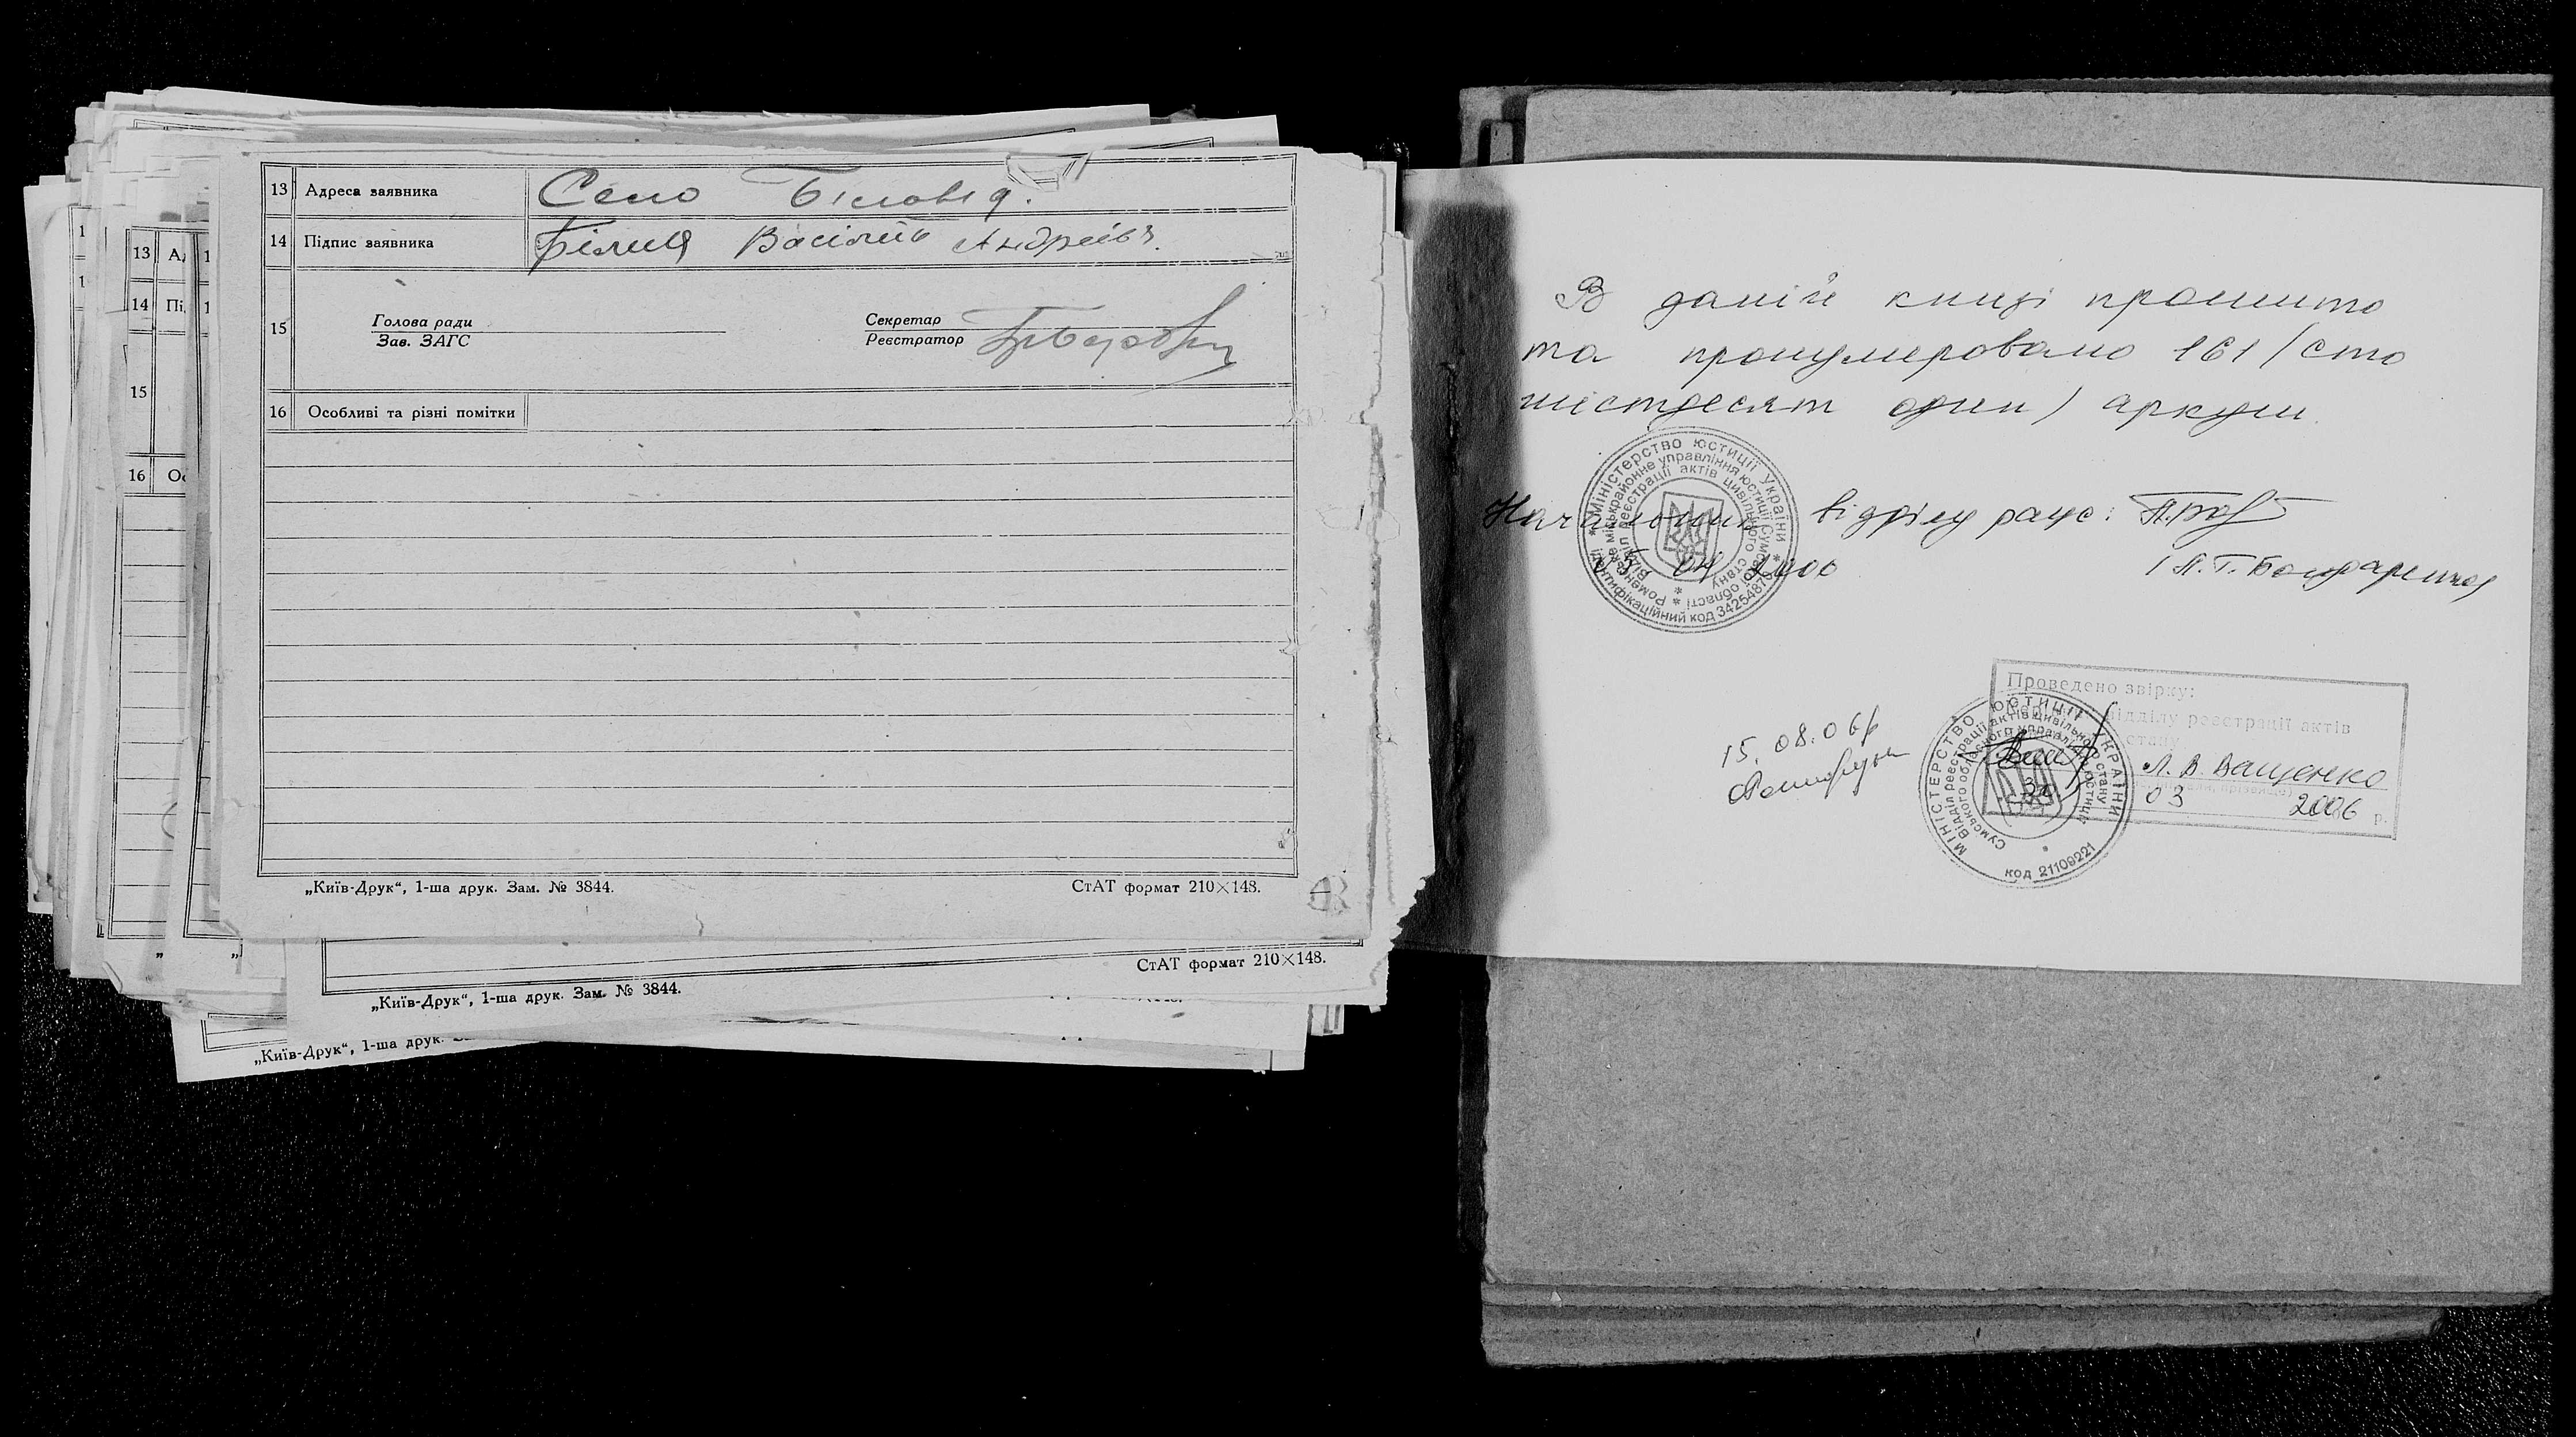 13 Адреса заявника Село Біловід.
14 Підпис заявника Білиця Васілий Андреевч.
15 Голова ради Секретар
Зав. ЗАГС Реєстратор
16 Особливі та різні помітки
„Київ-Друк“, 1-ша друк. Зам. № 3844.
СтАТ формат 210×148.
СтАТ формат 210×148.
„Київ-Друк“, 1-ша друк. Зам. № 3844.
„Київ-Друк“, 1-ша друк.
13
14 Пі
15
16 Ос
В даній книзі прошито
та пронумеровано 161 /сто
шістдесят один) аркуш.
Начальник відділу рацс:
04 2006
/ Л.Г. Бондаренко/
Міністерство юстиції України * Ідентифікаційний код 3425487
Роменське міськрайонне управління юстиції Сумської області *
Відділ реєстрації актів цивільного стану
15.08.06р
Проведено звірку:
відділу реєстрації актів
стану
Л. В. Ващенко
31 03 2006 р.
МІНІСТЕРСТВО ЮСТИЦІЇ УКРАЇНИ
Відділ реєстрації актів цивільного стану
Сумського обласного управління юстиції
код 21109221